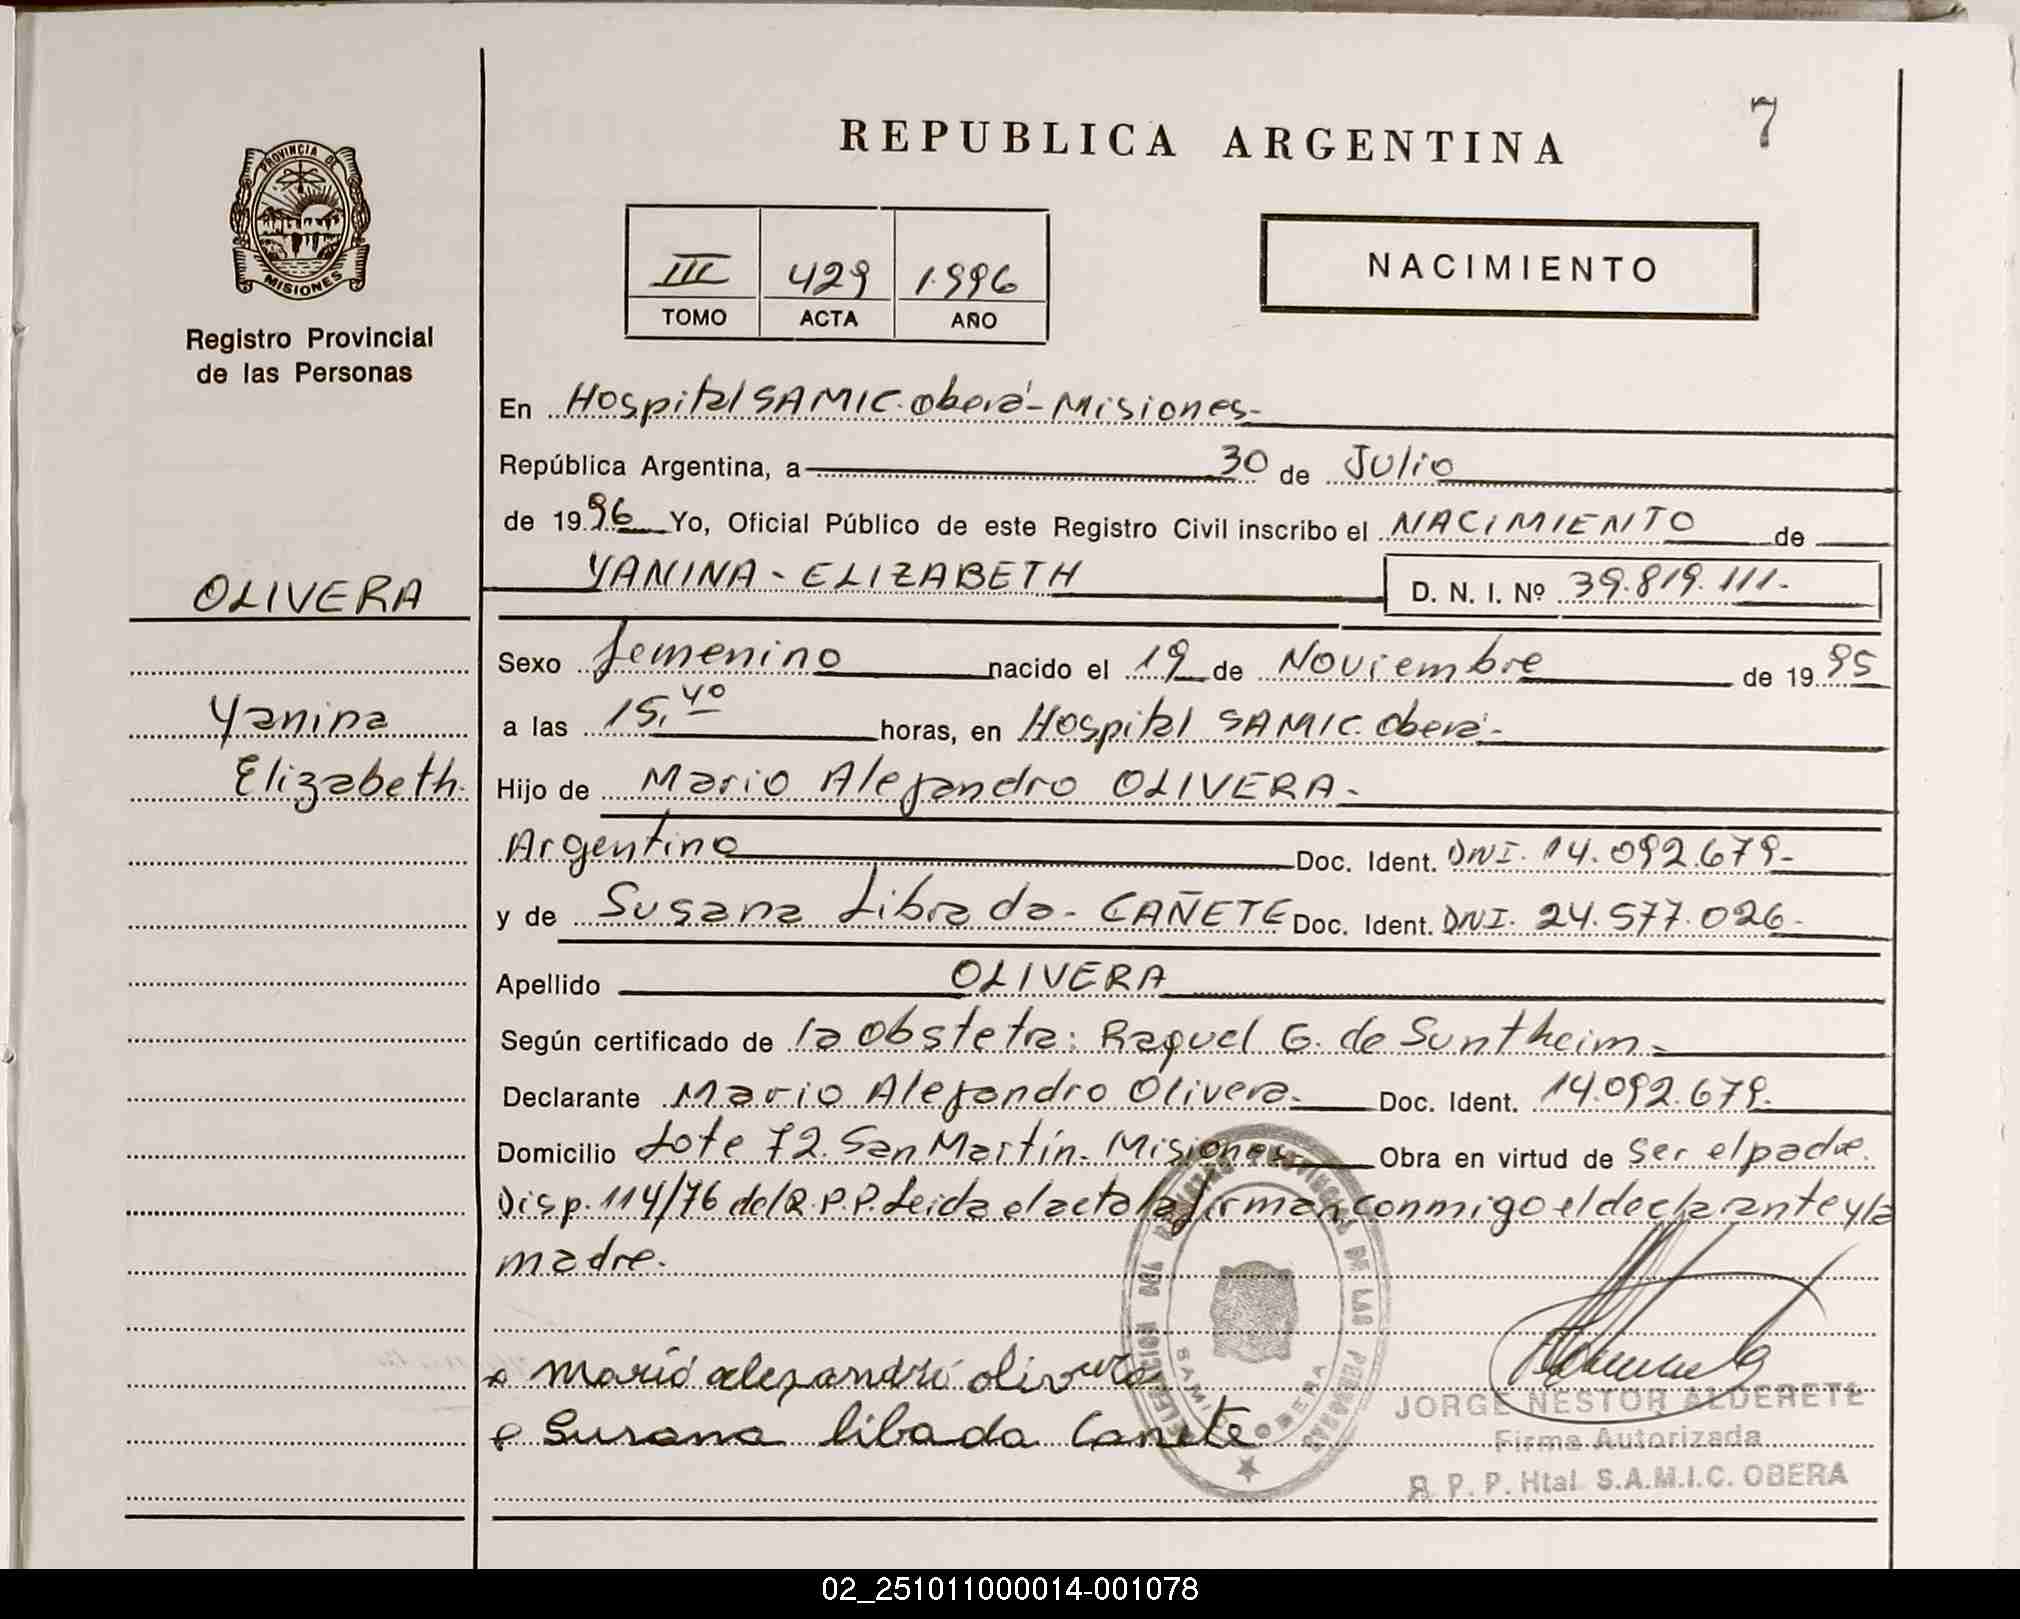 REPUBLICA ARGENTINA
7
PROVINCIA DE
MISIONES
Registro Provincial
de las Personas
III 429 1.996
TOMO ACTA AÑO
NACIMIENTO
En Hospital SAMIC. Oberá - Misiones -
República Argentina, a 30 de Julio
de 1996 Yo, Oficial Público de este Registro Civil inscribo el NACIMIENTO de
YANINA - ELIZABETH D. N. I. Nº 39.819.111.-
OLIVERA
Yanina
Elizabeth.
Sexo femenino nacido el 19 de Noviembre de 1995
a las 15,40 horas, en Hospital SAMIC. Oberá -
Hijo de Mario Alejandro OLIVERA -
Argentino Doc. Ident. DNI. 14.092.679-
y de Susana Librada - CAÑETE Doc. Ident. DNI. 24.577.026-
Apellido OLIVERA
Según certificado de la Obstetra: Raquel G. de Suntheim -
Declarante Mario Alejandro Olivera. Doc. Ident. 14.092.679.
Domicilio Lote 72. San Martín - Misiones Obra en virtud de ser el padre.
Disp. 114/76 del R.P.P. Leida el acta la firman conmigo el declarante y la
madre.
mario alejandro olivera
Susana libada Canete
DELEGACION DEL REGISTRO PROVINCIAL DE LAS PERSONAS
SAMIC OBERA
JORGE NESTOR ALDERETE
Firma Autorizada
R. P. P. Htal. S.A.M.I.C. OBERA
02_251011000014-001078